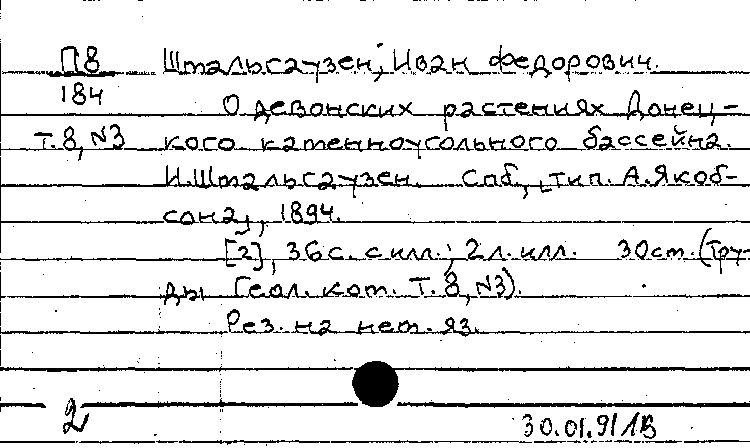 П8 Штальгаузен, Иван Федорович.
184
О девонских растениях Донец-
т.8, №3 кого каменноугольного бассейна.
И.Штальгаузен. Спб., [тип. А.Якоб-
сона], 1894.
[2], 36 с. с илл.; 2 л. илл. 30 см. (Тру-
ды Геол. ком. Т. 8, №3).
Рез. на нем. яз.
2
30.01.91 1В